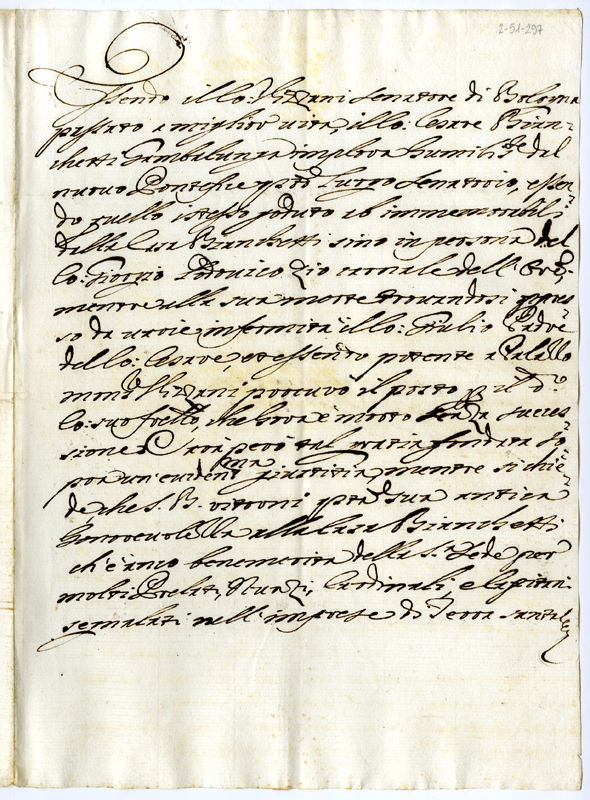 2-51-297
Essendo il Co: Vizzani senatore di Bologna
passato a miglior vita, il Co: Cesare Bian-
chetti Gambalunga implora humilte dal
nuovo Pontefice questo luogo senatorio, essen-
do quello istesso goduto ab immemorabili
dalla Casa Bianchetti sino in persona del
Co: Giorgio Lodovico zio carnale dell'Ore,
mentre alla sua morte trovandosi oppres-
so da varie infermità il Co: Giulio Padre
del Co: Cesare, et essendo potente a Palazzo
monr Vizzani procurò il posto p il do
Co: suo frello, che hora è morto senza succes-
sione. Sarà però tal gratia fondata so-
pra un'evidentma giustitia, mentre si chie-
de che S. B. ritorni pta sua antica
honorevolezza alla Casa Bianchetti
ch'è anco benemerita della Sta Sede per
molti Prelati, Nunzj, Cardinali, e Capitani
segnalati nell'imprese di Terra santa